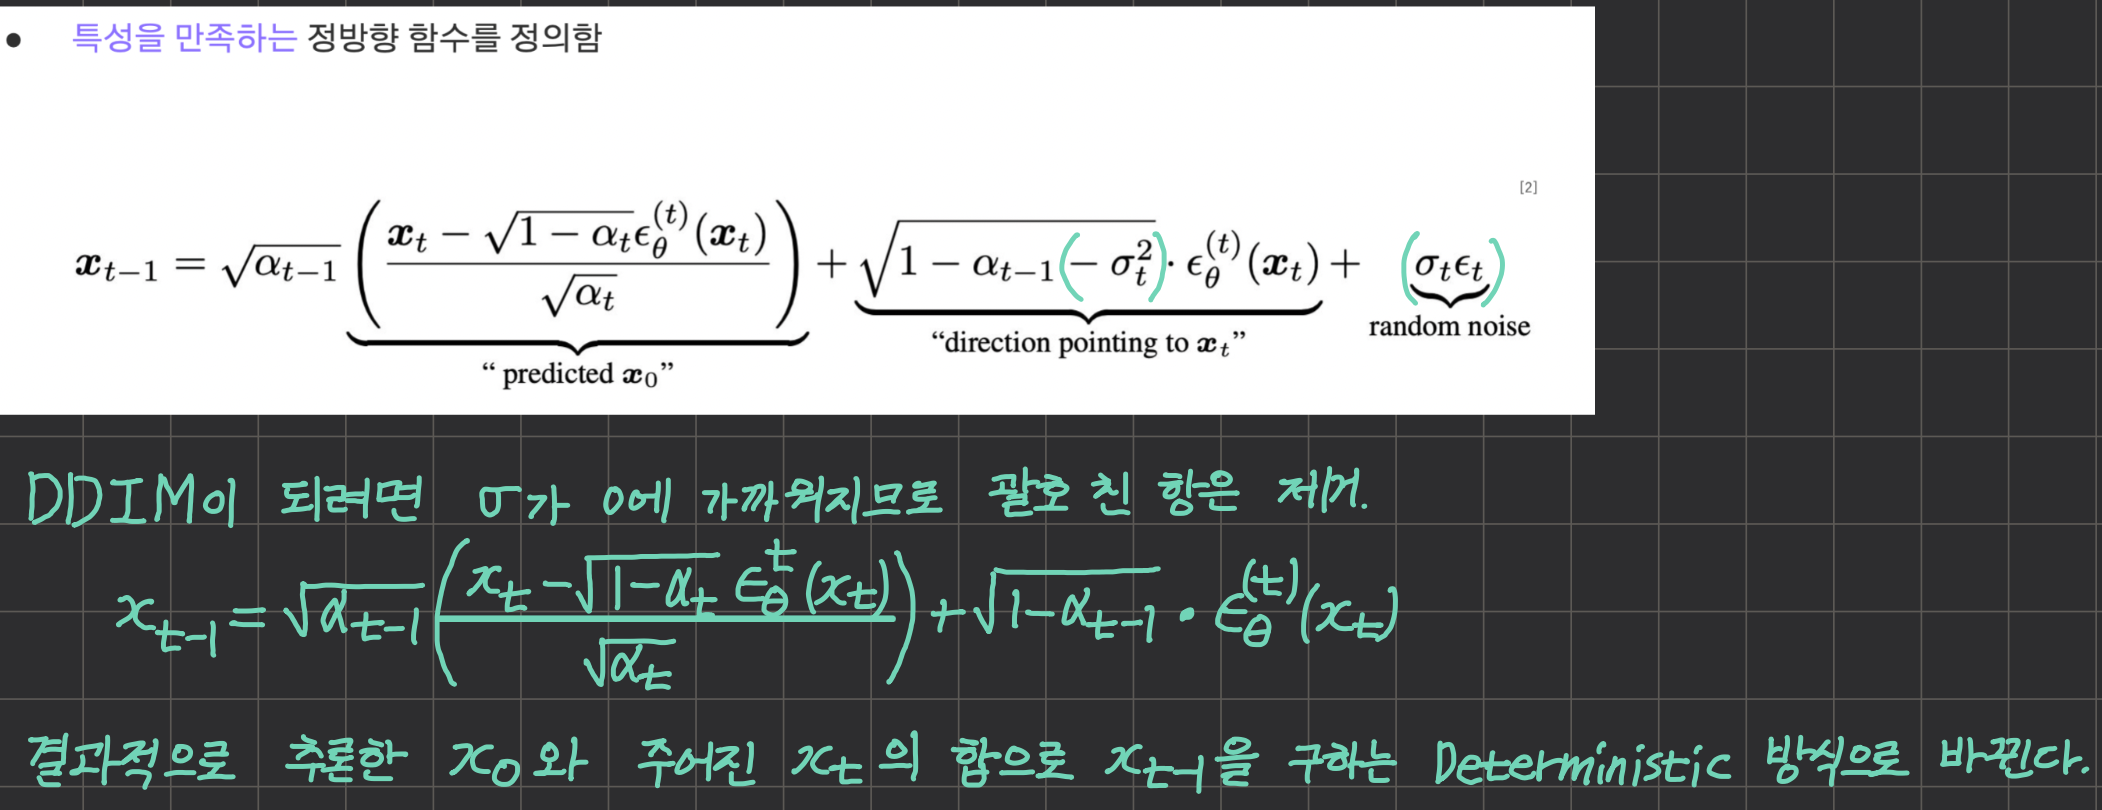 ● 특성을 만족하는 정방향 함수를 정의함
[2]
x_{t−1} = √α_{t−1} ( (x_t − √(1 − α_t) ϵ_θ^{(t)}(x_t)) / √α_t ) + √(1 − α_{t−1} (− σ_t^2)) · ϵ_θ^{(t)}(x_t) + (σ_t ϵ_t)
“ predicted x_0” “direction pointing to x_t” random noise
DDIM이 되려면 σ가 0에 가까워지므로 괄호 친 항은 제거.
x_{t-1} = √α_{t-1} ( (x_t - √(1-α_t) ϵ_θ^t(x_t)) / √α_t ) + √(1-α_{t-1}) · ϵ_θ^{(t)}(x_t)
결과적으로 추론한 x_0와 주어진 x_t의 합으로 x_{t-1}을 구하는 Deterministic 방식으로 바뀐다.